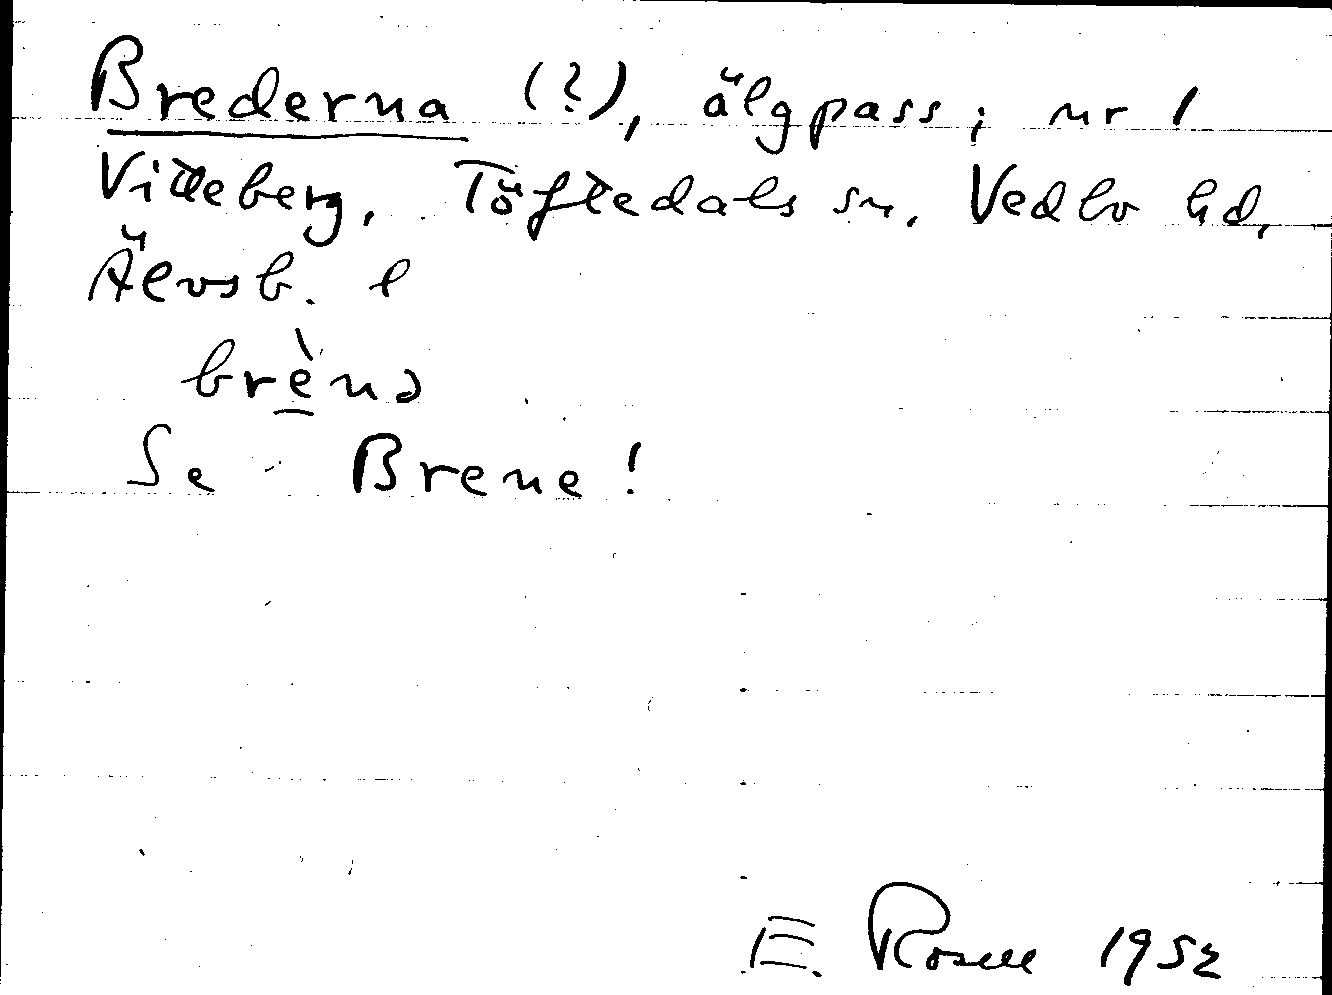 Brederna (?), älgpass; nr 1
Vitteberg, Töftedals sn, Vedbo hd,
Älvsb. l
brènə
Se Brene!
E. Rosell 1952